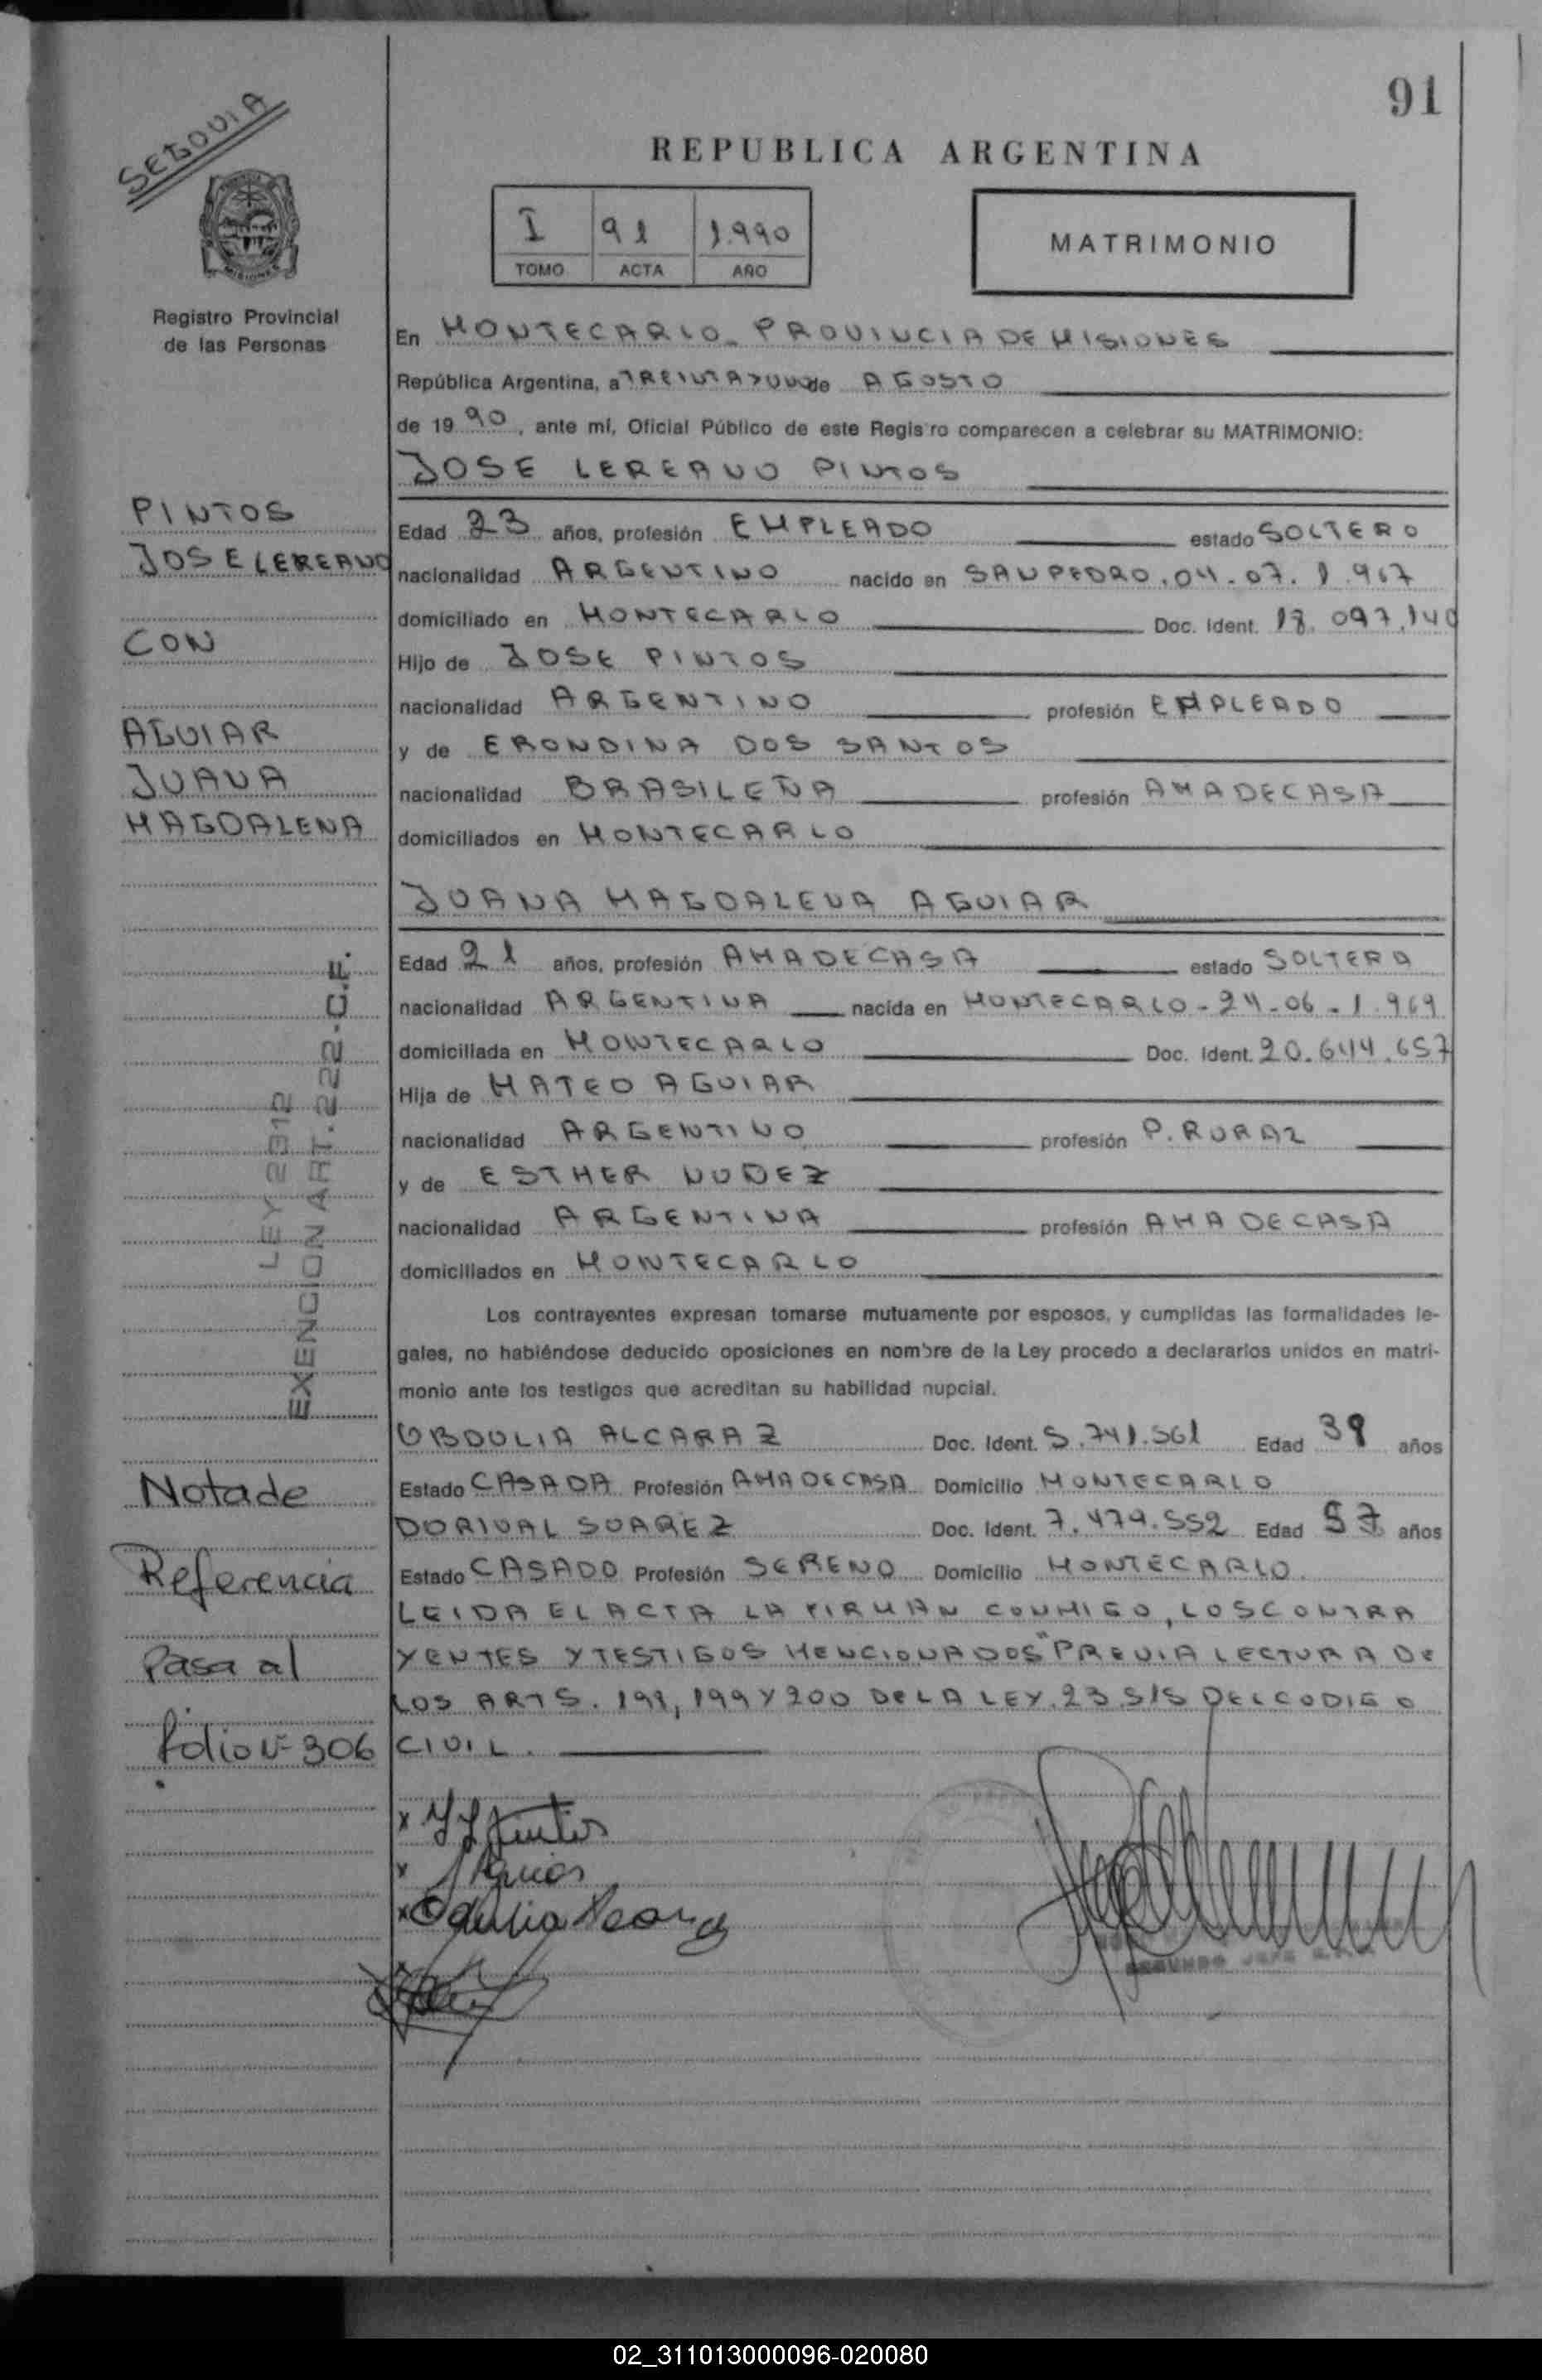 91
SEGOVIA
REPUBLICA ARGENTINA
I 91 1.990
TOMO ACTA AÑO
MATRIMONIO
Registro Provincial
de las Personas
En MONTECARLO - PROVINCIA DE MISIONES
República Argentina, a TREINTA Y UNO de AGOSTO
de 19 90, ante mí, Oficial Público de este Registro comparecen a celebrar su MATRIMONIO:
JOSE LEREANO PINTOS
PINTOS
JOSE LEREANO
CON
AGUIAR
JUANA
MAGDALENA
Edad 23 años, profesión EMPLEADO estado SOLTERO
nacionalidad ARGENTINO nacido en SAN PEDRO. 04-07.1.967
domiciliado en MONTECARLO Doc. Ident. 18.097.140
Hijo de JOSE PINTOS
nacionalidad ARGENTINO profesión EMPLEADO
y de ERONDINA DOS SANTOS
nacionalidad BRASILEÑA profesión AMA DE CASA
domiciliados en MONTECARLO
JUANA MAGDALENA AGUIAR
Edad 21 años, profesión AMA DE CASA estado SOLTERA
nacionalidad ARGENTINA nacida en MONTECARLO - 24-06-1.969
domiciliada en MONTECARLO Doc. Ident. 20.644.657
Hija de MATEO AGUIAR
nacionalidad ARGENTINO profesión P. RURAL
y de ESTHER NUÑEZ
nacionalidad ARGENTINA profesión AMA DE CASA
domiciliados en MONTECARLO
LEY 2312
EXENCION ART. 222-C.F.
Los contrayentes expresan tomarse mutuamente por esposos, y cumplidas las formalidades le-
gales, no habiéndose deducido oposiciones en nombre de la Ley procedo a declararlos unidos en matri-
monio ante los testigos que acreditan su habilidad nupcial.
OBDULIA ALCARAZ Doc. Ident. 5.741.561 Edad 39 años
Estado CASADA Profesión AMA DE CASA Domicilio MONTECARLO
DORIVAL SUAREZ Doc. Ident. 7.474.552 Edad 57 años
Estado CASADO Profesión SERENO Domicilio MONTECARLO.
LEIDA EL ACTA LA FIRMAN CONMIGO, LOS CONTRA
YENTES Y TESTIGOS MENCIONADOS "PREVIA LECTURA DE
LOS ARTS. 198, 199 Y 200 DE LA LEY. 23.515 DEL CODIGO
CIVIL.
Nota de
Referencia
Pasa al
folio Nº 306
x J L Pintos
x J Aguiar
x
SEGUNDO JEFE
02_311013000096-020080